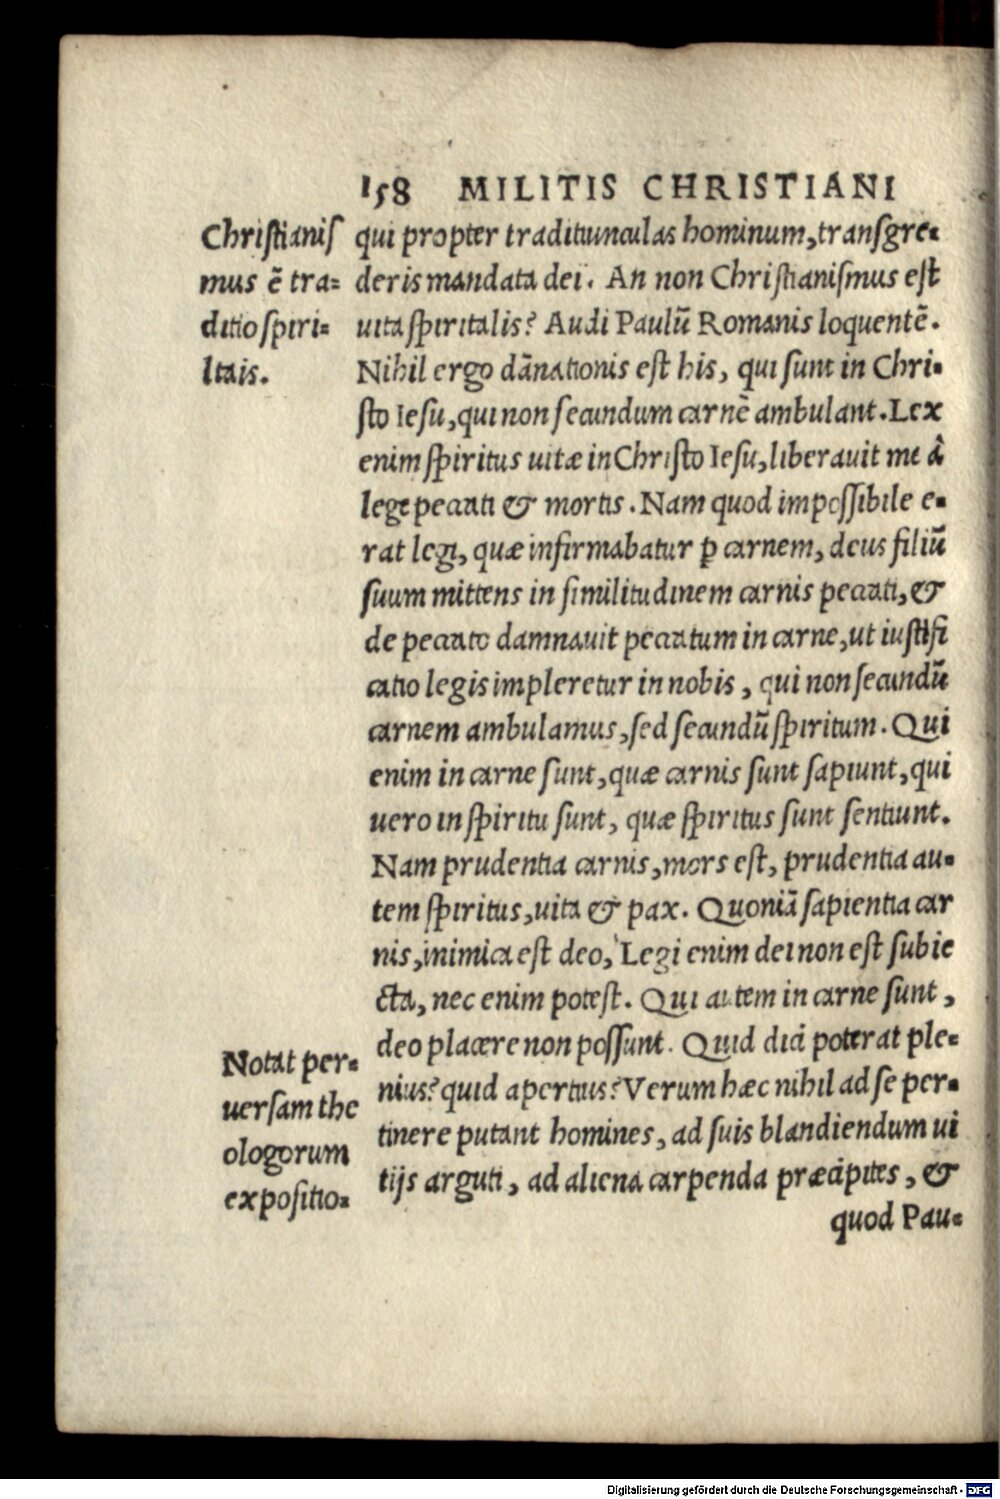 158 MILITIS CHRISTIANI
Christianis
mus ē tra-
ditio spiri-
ltais.
qui propter traditiunculas hominum, transgre-
deris mandata dei. An non Christianismus est
uita spiritalis? Audi Paulū Romanis loquentē.
Nihil ergo dānationis est his, qui sunt in Chri-
sto Iesu, qui non secundum carnē ambulant. Lex
enim spiritus uitæ in Christo Iesu, liberauit me à
lege peccati & mortis. Nam quod impossibile e-
rat legi, quæ infirmabatur ꝑ carnem, deus filiū
suum mittens in similitudinem carnis peccati, &
de peccato damnauit peccatum in carne, ut iustifi
catio legis impleretur in nobis, qui non secundū
carnem ambulamus, sed secundū spiritum. Qui
enim in carne sunt, quæ carnis sunt sapiunt, qui
uero in spiritu sunt, quæ spiritus sunt sentiunt.
Nam prudentia carnis, mors est, prudentia au-
tem spiritus, uita & pax. Quoniā sapientia car
nis, inimica est deo, Legi enim dei non est subie
cta, nec enim potest. Qui autem in carne sunt,
deo placere non possunt. Quid dici poterat ple-
nius? quid apertius? Verum hæc nihil ad se per-
tinere putant homines, ad suis blandiendum ui
tijs arguti, ad aliena carpenda præcipites, &
quod Pau-
Notat per-
uersam the
ologorum
expositio-
Digitalisierung gefördert durch die Deutsche Forschungsgemeinschaft - DFG